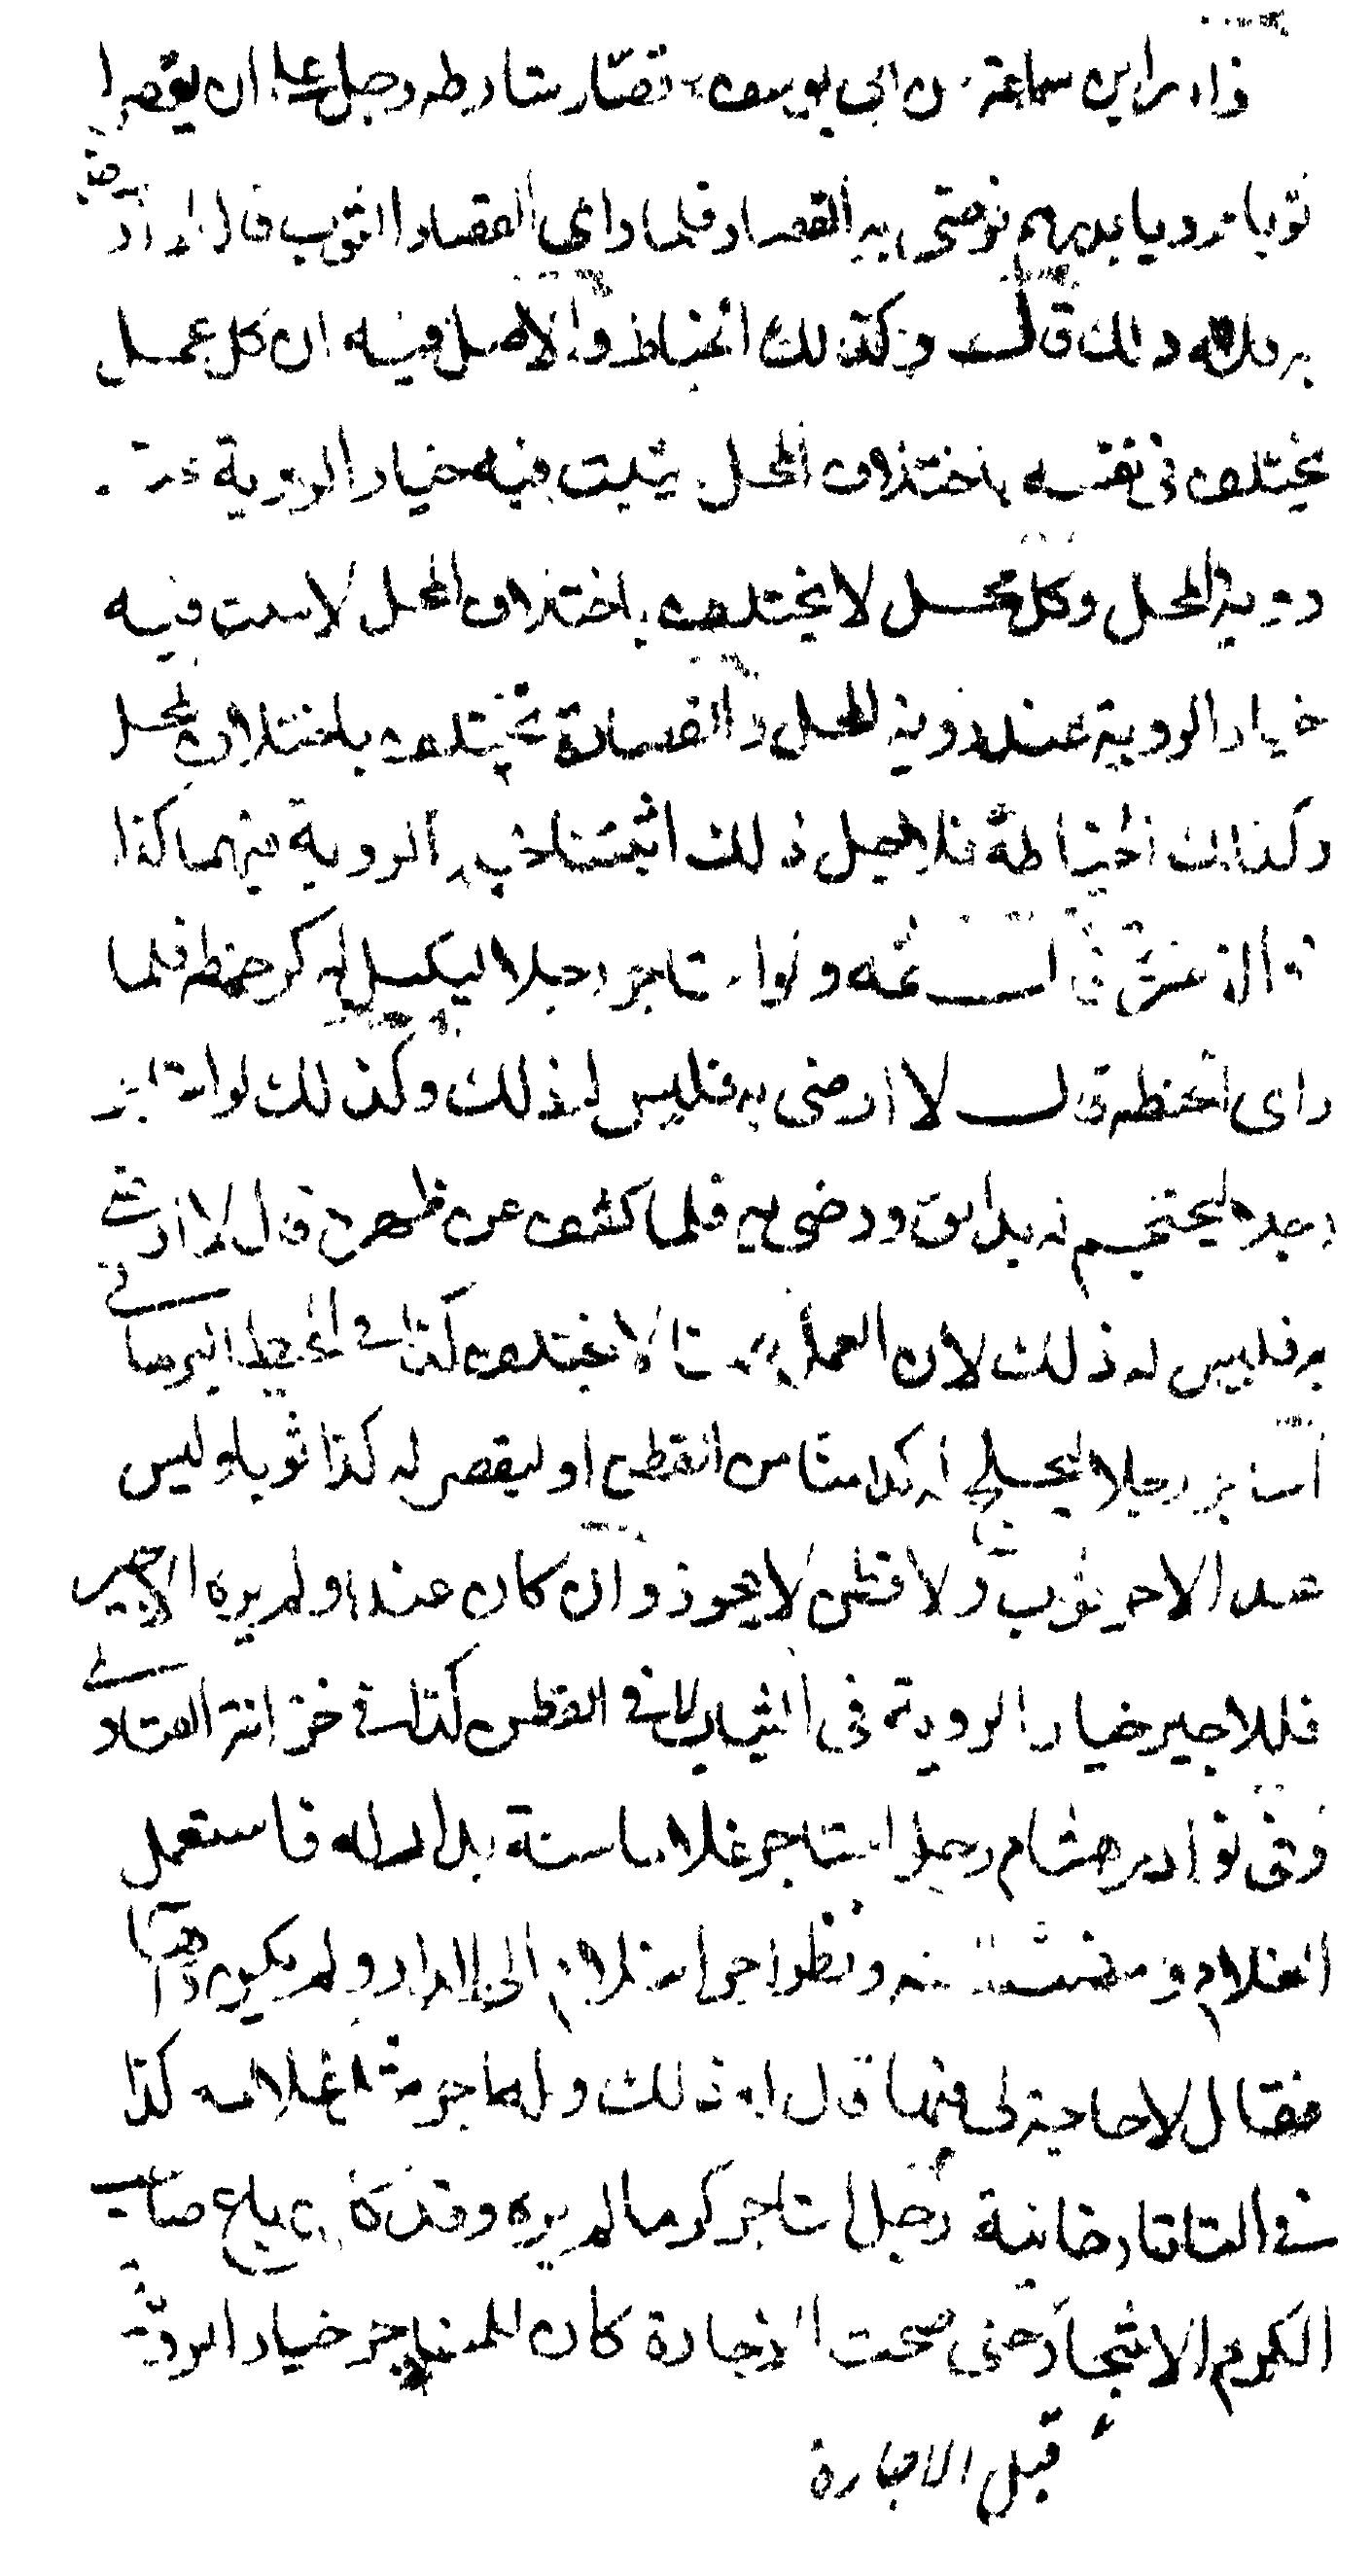 نوادر ابن سماعة عن ابي يوسف قصار شارطه رجل على ان يقصر له
ثوبا مرويا بدرهم فرضي به القصار فلما راى القصار الثوب قال لا ارضى
به فله ذلك قال وكذلك الخياط والاصل فيه ان كل عمل
يختلف في نفسه باختلاف المحل يثبت فيه خيار الروية عند
روية المحل وكل محل لا يختلف باختلاف المحل لا يثبت فيه
خيار الروية عند روية المحل والقصارة تختلف باختلاف المحل
وكذلك الخياطة فلاجل ذلك اثبتنا خيار الروية فيهما كذا
قال ثمه ولو استاجر رجلا ليكيل له كر حنطه فلما
راى الحنطه قال لا ارضى به فليس له ذلك وكذلك لو استاجر
رجلا ليحتجم له بدانق ورضي به فلما كشف عن ظهره قال لا ارضى
به فليس له ذلك لان العمل هنا لا يختلف كذا في المحيط
استاجر رجلا ليحلج له كذا منا من القطن او ليقصر له كذا ثوبا وليس
عند الاجر ثوب ولا قطن لا يجوز وان كان عنده ولم يره الاجير
فللاجير خيار الروية في الثياب لا في القطن كذا في خزانة الفتاوى
وفي نوادر هشام رجل استاجر غلاما سنة بدار له فاستعمل
الغلام ومضت سنه ونظر اجر الغلام الى الدار ولم يكن رآها
فقال لا حاجة لي فيها قال له ذلك وله اجر مثل غلامه كذا
في التاتارخانية رجل استاجر كرما لم يره وقد باع صاحب
الكرم الاشجار حتى صحت الاجارة كان للمستاجر خيار الروية
قبل الاجارة